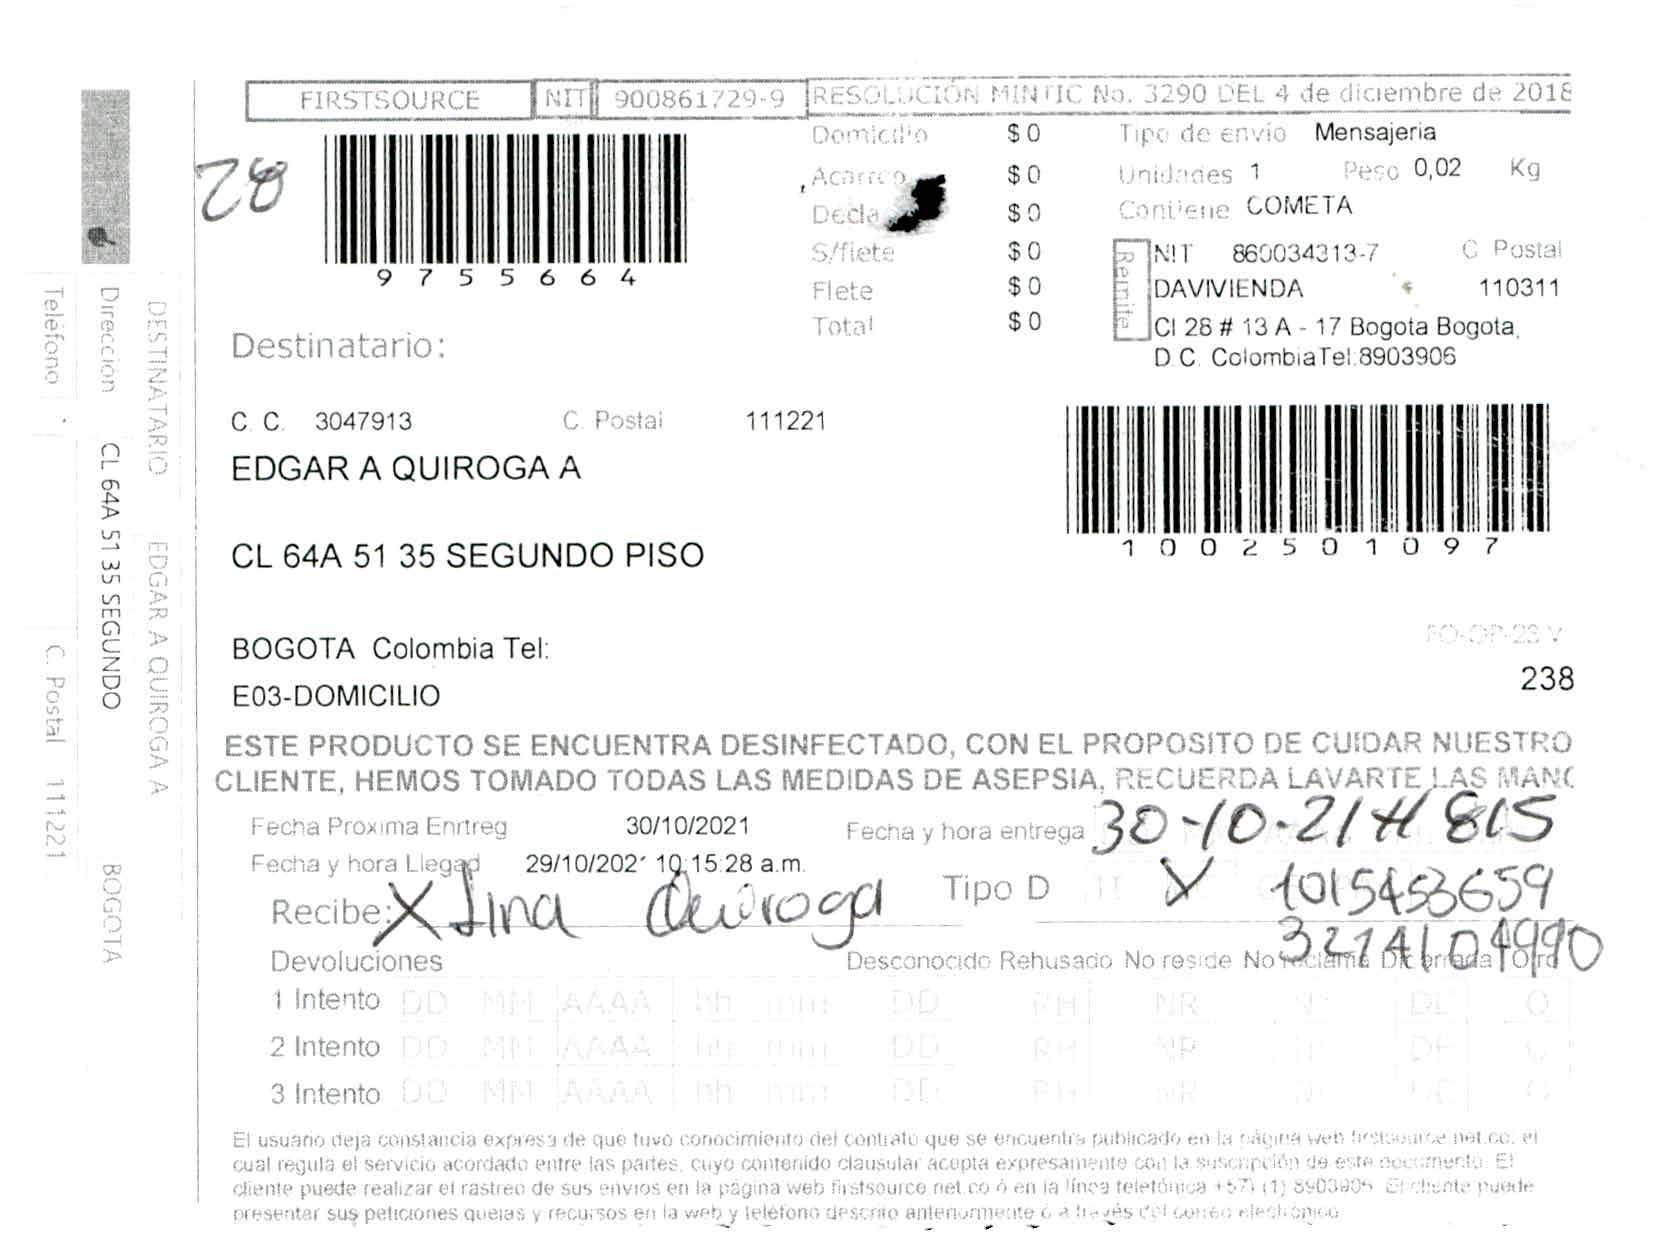 FIRSTSOURCE NIT 900861729-9 RESOLUCIÓN MINTIC No. 3290 DEL 4 de diciembre de 2018
28
9755664
Domicilio $ 0
Acarreo $ 0
Decla $ 0
S/flete $ 0
Flete $ 0
Total $ 0
Tipo de envio Mensajeria
Unidades 1 Peso 0,02 Kg
Contiene COMETA
Remite
NIT 860034313-7 C Postal
DAVIVIENDA 110311
Cl 28 # 13 A - 17 Bogota Bogota,
D.C. Colombia Tel:8903906
Destinatario:
C. C. 3047913 C. Postal 111221
EDGAR A QUIROGA A
CL 64A 51 35 SEGUNDO PISO
1002501097
BOGOTA Colombia Tel:
E03-DOMICILIO
FO-OP-23 V
238
ESTE PRODUCTO SE ENCUENTRA DESINFECTADO, CON EL PROPOSITO DE CUIDAR NUESTRO
CLIENTE, HEMOS TOMADO TODAS LAS MEDIDAS DE ASEPSIA, RECUERDA LAVARTE LAS MANO
Fecha Proxima Enrtreg 30/10/2021 Fecha y hora entrega 30-10-21 H 815
Fecha y hora Llegad 29/10/2021 10:15:28 a.m.
Recibe: X Lina Quiroga Tipo D X 1015453659
Devoluciones Desconocido Rehusado No reside No reclama Dir errada Otro
1 Intento DD MM AAAA hh mm DD RH NR DE O
2 Intento DD MM AAAA hh mm DD RH NR DE O
3 Intento DD MM AAAA hh mm DD RH NR DE O
El usuario deja constancia expresa de que tuvo conocimiento del contrato que se encuentra publicado en la página web firstsource.net.co, el
cual regula el servicio acordado entre las partes, cuyo contenido clausular acepta expresamente con la suscripción de este documento. El
cliente puede realizar el rastreo de sus envios en la página web firstsource.net.co ó en la línea telefónica +57) (1) 8903906. El cliente puede
presentar sus peticiones quejas y recursos en la web y teléfono descrito anteriormente o a través del correo electrónico
DESTINATARIO EDGAR A QUIROGA A
Dirección CL 64A 51 35 SEGUNDO BOGOTA
Teléfono C. Postal 111221